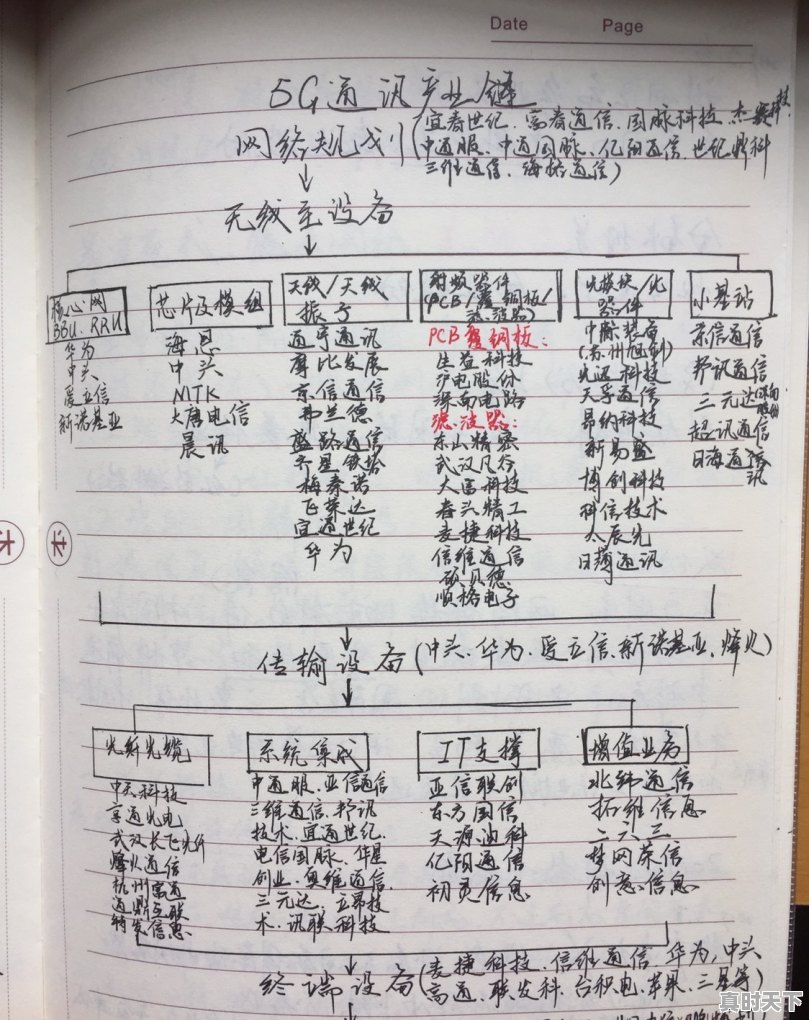 Date Page
5G通讯产业链
网络规划(宜春世纪、富春通信、国脉科技、杰赛科技、
中通服、中通国脉、亿阳通信、世纪鼎科
三维通信、海格通信)
无线主设备
核心网
BBU、RRU
华为
中兴
爱立信
新诺基亚
芯片及模组
海思
中兴
MTK
大唐电信
展讯
天线/天线
振子
通宇通讯
摩比发展
京信通信
弗兰德
盛路通信
齐星铁塔
梅泰诺
飞荣达
宜通世纪
华为
射频器件
(PCB/覆铜板/
滤波器)
PCB覆铜板:
生益科技
沪电股份
深南电路
滤波器:
东山精密
武汉凡谷
大富科技
春兴精工
麦捷科技
信维通信
硕贝德
顺络电子
光模块/光
器件
中际装备
(苏州旭创)
光迅科技
天孚通信
昂纳科技
新易盛
博创科技
科信技术
太辰光
日海通讯
小基站
京信通信
邦讯通信
三元达
超讯通信
日海通讯
传输设备(中兴、华为、爱立信、新诺基亚、烽火)
光纤光缆
中天科技
亨通光电
武汉长飞光纤
烽火通信
杭州富通
通鼎互联
特发信息
系统集成
中通服、亚信通信
三维通信、邦讯
技术、宜通世纪、
电信国脉、华星
创业、奥维通信、
三元达、立昂技
术、讯联科技
IT支撑
亚信联创
东方国信
天源迪科
亿阳通信
初灵信息
增值业务
北纬通信
拓维信息
二六三
梦网荣信
创意信息
终端设备(麦捷科技、信维通信、华为,中兴
高通、联发科、台积电、苹果、三星等)
真时天下